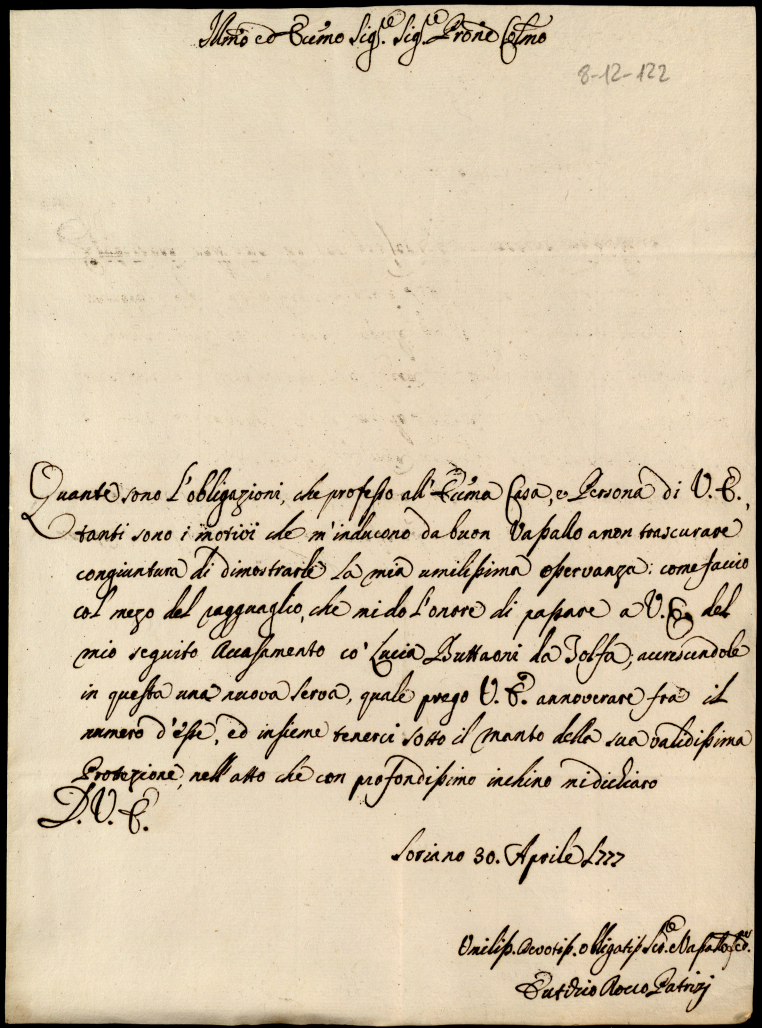 Illmo ed Eccmo Sigre. Sigre Prone Colmo
8-12-122
Quante sono l'obligazioni, che professo all'Eccma Casa, e Persona di V. E.,
tanti sono i motivi che m'inducono da buon Vassallo a non trascurare
congiuntura di dimostrarle la mia umilissima osservanza: come faccio
col mezo del ragguaglio, che mi do l'onore di passare a V. E. del
mio seguito Accasamento co' Lucia Buttaoni da Tolfa, accrescendole
in questa una nuova serva, quale prego V. E. annoverare fra il
numero d'esse, ed insieme tenerci sotto il manto della sua validissima
Protezione, nell'atto che con profondissimo inchino mi dichiaro
D. V. E.
Soriano 30. Aprile 1777
Umiliss. Devotiss. obligatiss Sre. e Vassallo
Rocco Patrizj